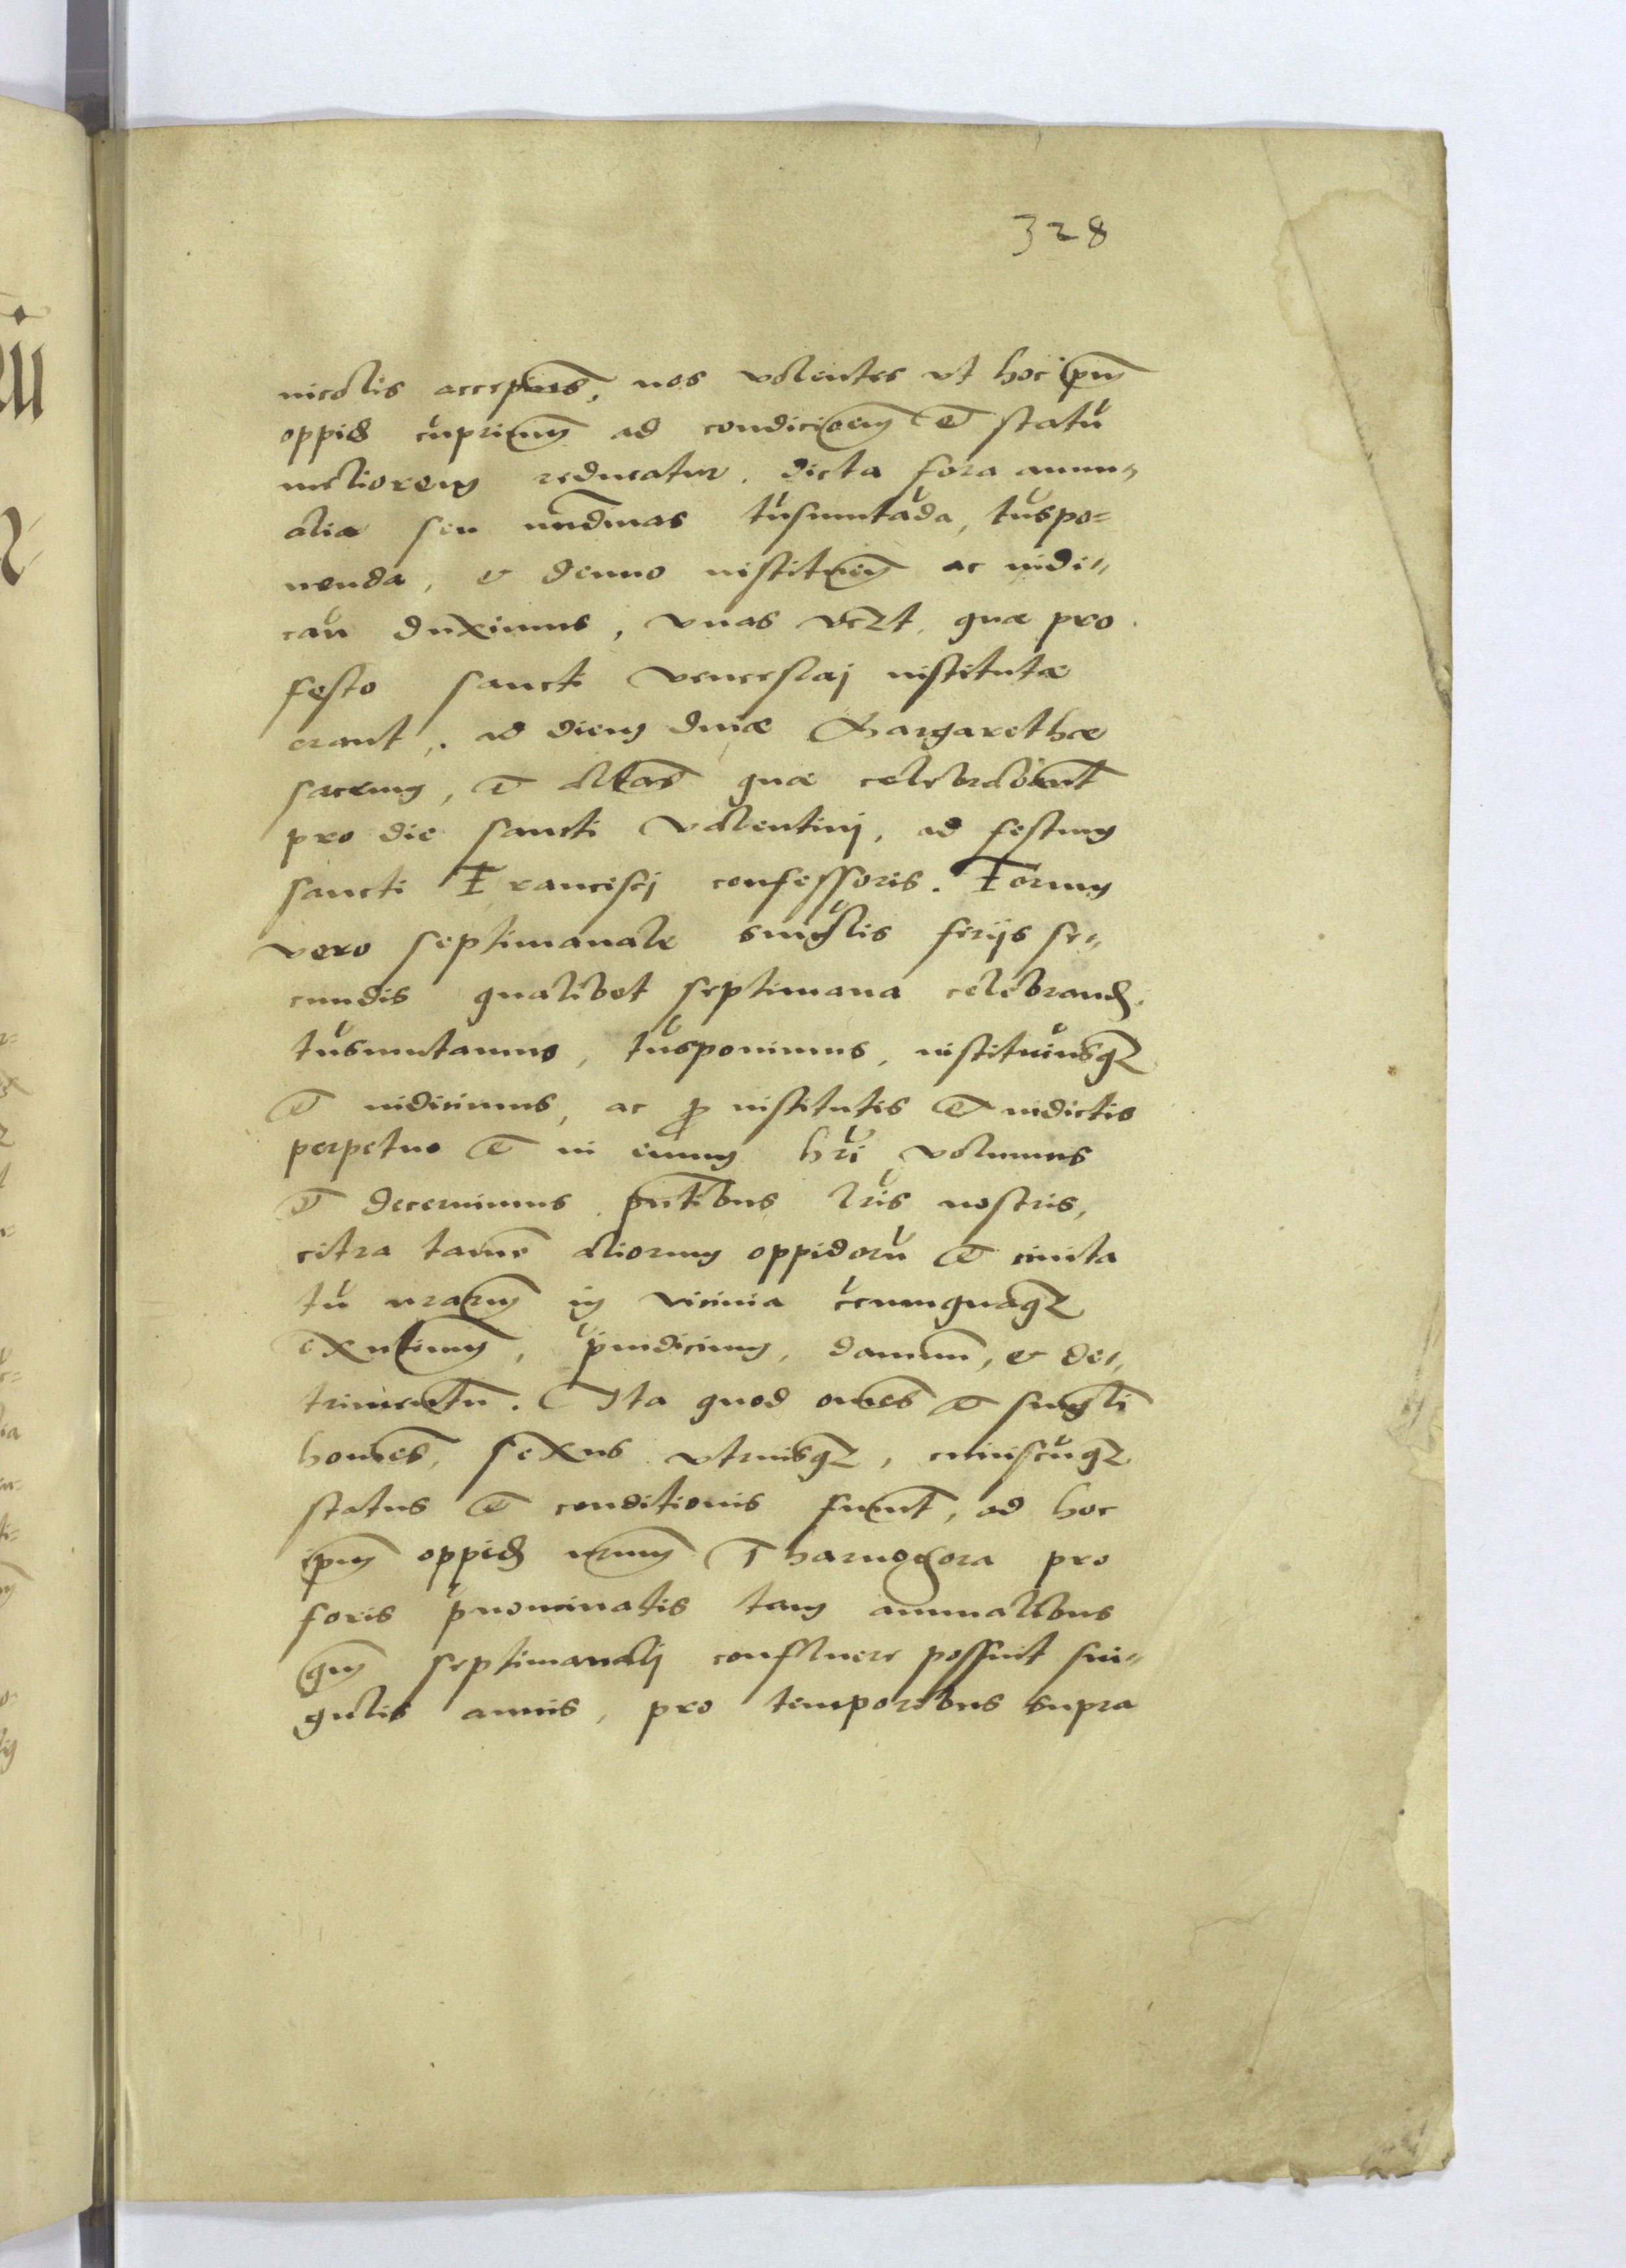 328
incolis accepimus, nos volentes vt hoc ipm
oppid cuprimum ad condicionem et statu
meliorem reducatur, dicta fora annu„
alia seu nundinas tusmutada, tuspo=
nenda, & denuo instituen ac indi„
cen duximus, vnas vczt, quæ pro
festo sancti venceslaj institutæ
erant, ad diem diuæ Margarethæ
sacrum, et altas quæ celebrabant
pro die sancti valentinj, ad festum
sancti Franciscj confessoris. Forum
vero septimanale singlis ferijs se„
cundis qualibet septimana celebrand.
tusmutamus, tusponimus, instituimusqz
et indicimus, ac p institutis et indictis
perpetuo et in euum hri volumus
et decernimus pntibus lris nostris,
citra tame aliorum oppidoru et ciuita
tu nrarum in vicinia cumquaqz
existentium, piudicium, damnum, & de„
trimentu. Ita quod omes et singli
homies, sexus vtriusqz, cuiuscuqz
status et conditionis fuerint, ad hoc
ipm oppid nrum Tharnogora pro
foris pnominatis tam annualibus
qm septimanalj confluere possint sin„
gulis annis, pro temporibus supra